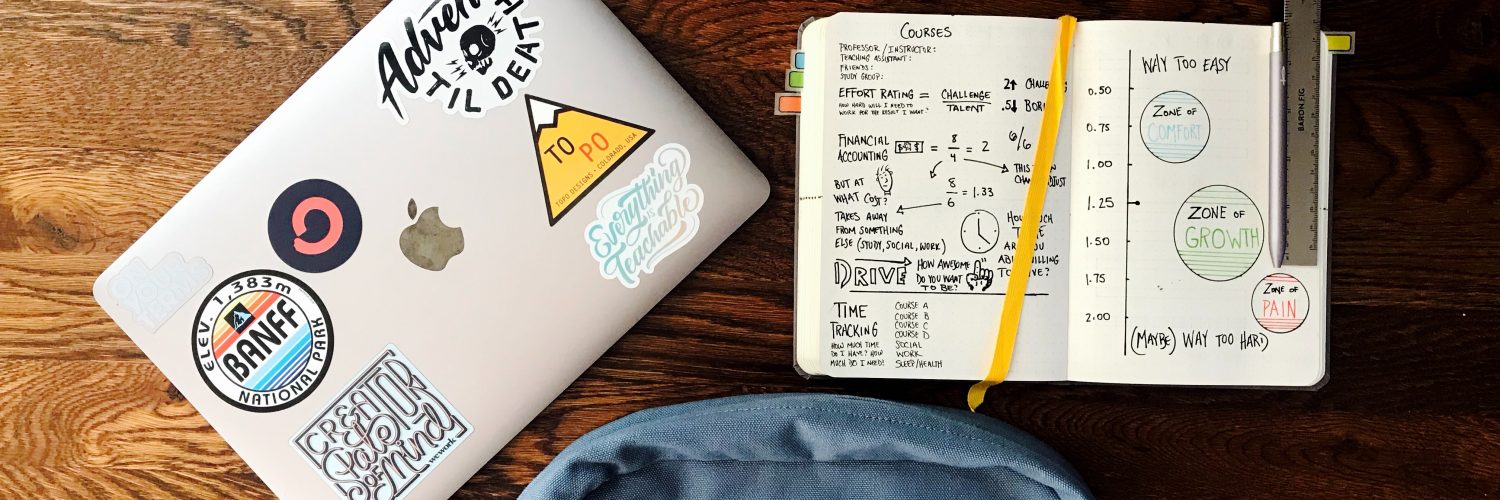 Adven
TIL DEATH
TO
PO
TOPO DESIGNS · COLORADO, USA
Everything
is
Teachable
ELEV. 1,383m
BANFF
NATIONAL PARK
CREATOR
State
OF Mind
wework
COURSES
PROFESSOR / INSTRUCTOR:
TEACHING ASSISTANT:
FRIENDS:
STUDY GROUP:
EFFORT RATING = CHALLENGE
TALENT
HOW HARD WILL I NEED TO
WORK FOR THE RESULT I WANT?
2↑ CHALLENG
.5↓ BORI
6/6
FINANCIAL
ACCOUNTING
= 8/4 = 2
THIS
CHAN ADJUST
8/6 = 1.33
BUT AT
WHAT COST?
TAKES AWAY
FROM SOMETHING
ELSE (STUDY, SOCIAL, WORK)
HOW MUCH
TIME
ARE YOU
WILLING
TO GIVE?
DRIVE
HOW AWESOME
DO YOU WANT
TO BE?
TIME
TRACKING
HOW MUCH TIME
DO I HAVE? HOW
MUCH DO I NEED?
COURSE A
COURSE B
COURSE C
COURSE D
SOCIAL
WORK
SLEEP/HEALTH
WAY TOO EASY
0.50
0.75
1.00
1.25
1.50
1.75
2.00
ZONE OF
COMFORT
ZONE OF
GROWTH
ZONE OF
PAIN
(MAYBE) WAY TOO HARD
BARON FIG